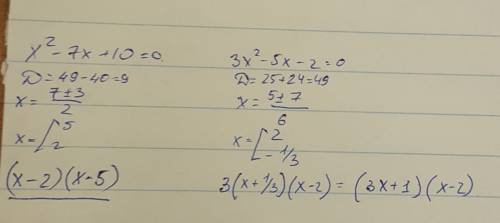 x² - 7x + 10 = 0
D = 49 - 40 = 9
x = (7 ± 3)/2
x = [5
2
(x - 2)(x - 5)
3x² - 5x - 2 = 0
D = 25 + 24 = 49
x = (5 ± 7)/6
x = [2
-1/3
3(x + 1/3)(x - 2) = (3x + 1)(x - 2)